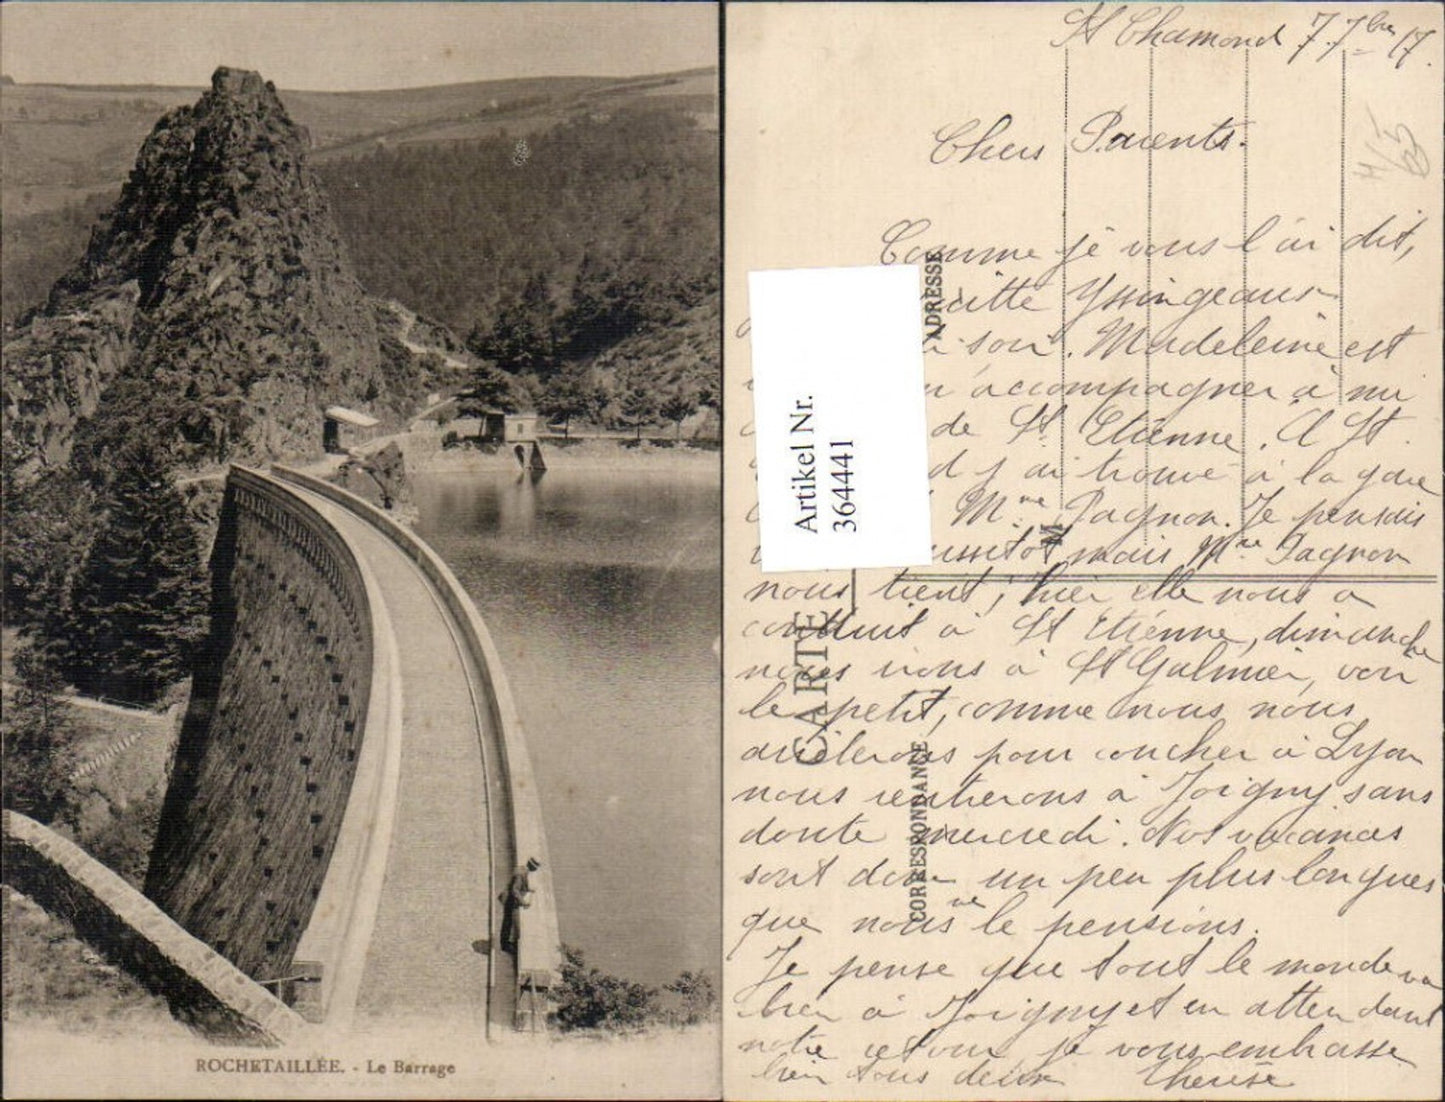 ROCHETAILLÉE. - Le Barrage
St Chamond 7 7bre 17.
H/5
65
Chers Parents.
Comme je vous l'ai dit,
quitte Yssingeaux
soir. Madeleine est
m'accompagner à mi
de St Etienne. A St
d j'ai trouvé à la gare
Mme Pagnon. Je pensais
aussitôt mais Mme Pagnon
nous tient ; hier elle nous a
conduit à St Etienne, dimanche
nous irons à St Galmier, voir
le petit, comme nous nous
arrêterons pour coucher à Lyon
nous rentrerons à Joigny sans
doute mercredi. Nos vacances
sont donc un peu plus longues
que nous ne le pensions.
Je pense que tout le monde va
bien à Joigny et en attendant
notre retour je vous embrasse
bien tous deux Thérèse
Artikel Nr.
364441
ADRESSE
M
CARTE
CORRESPONDANCE